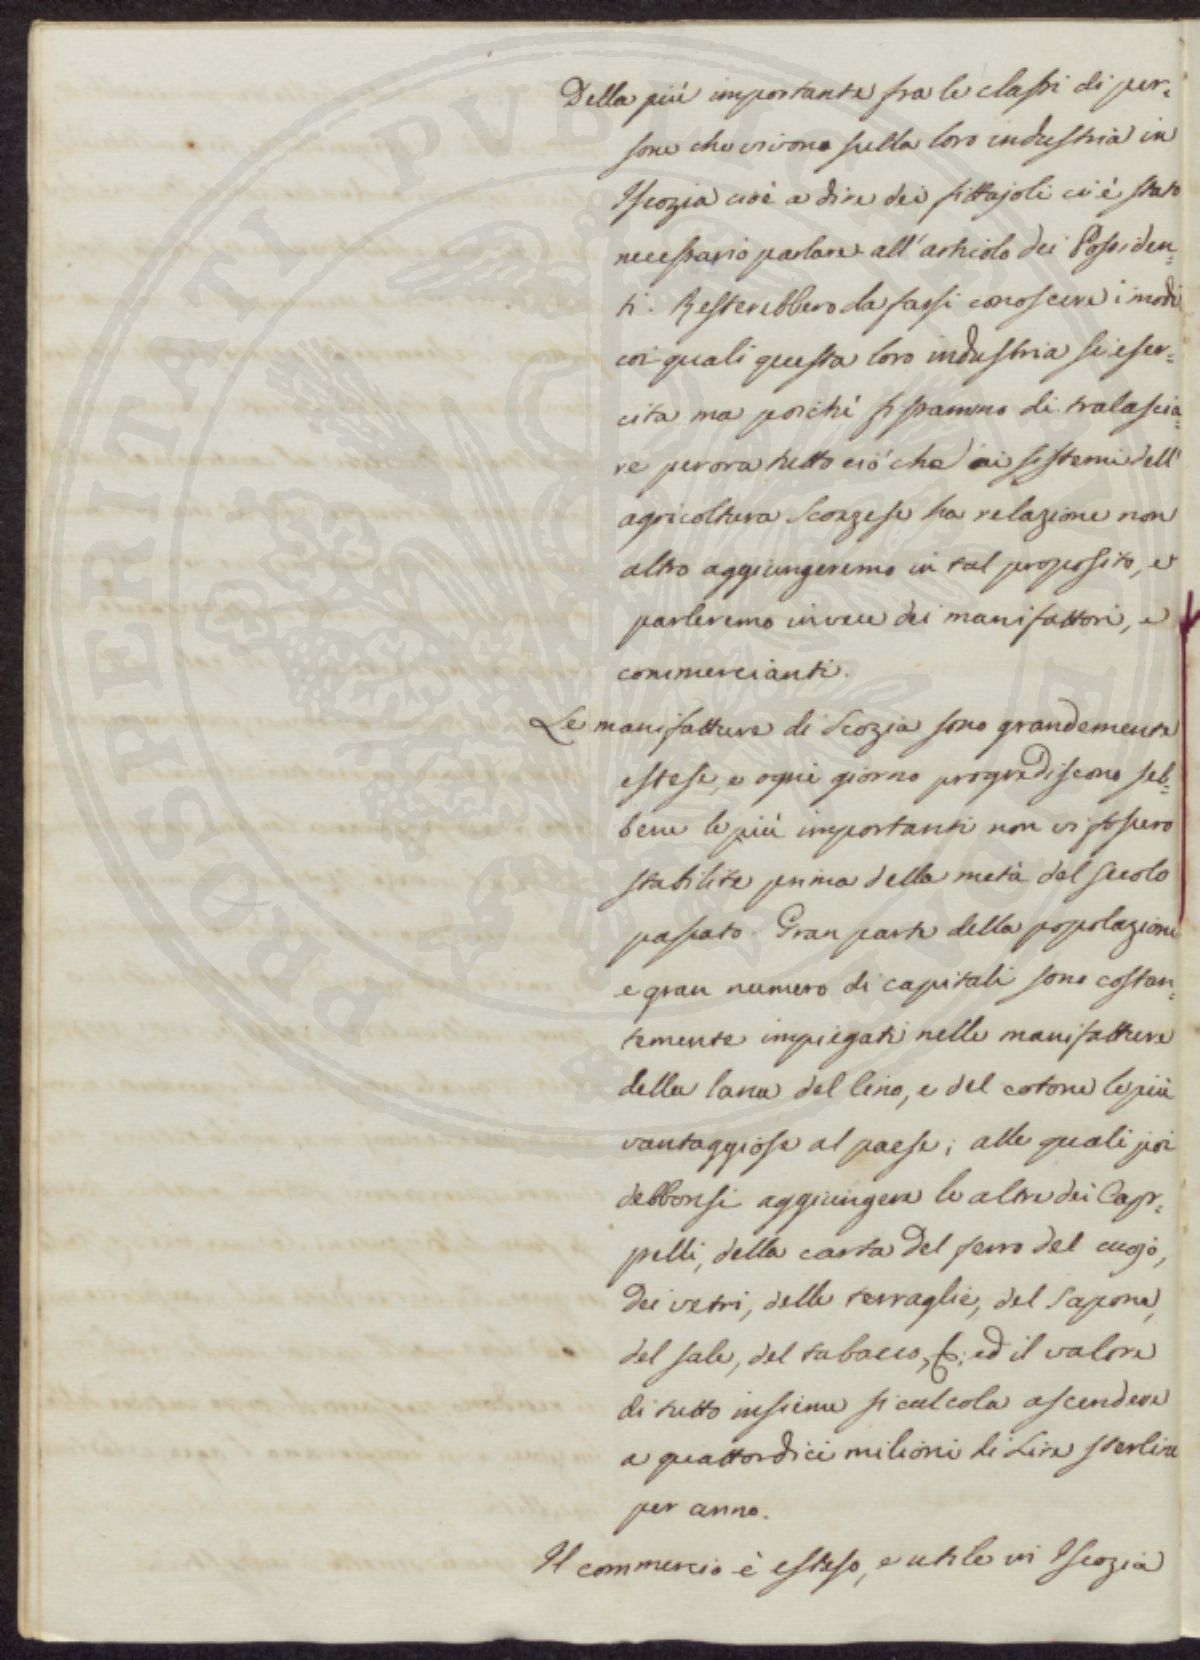 Della più importante fra le classi di per=
sone che vivono sulla loro industria in
Iscozia cioè a dire dei fittajoli ci è stato
necessario parlare all'articolo dei Possiden=
ti. Resterebbero da farsi conoscere i modi
coi quali questa loro industria si eser=
cita ma poichè fissammo di tralascia=
re perora tutto ciò che ai sistemi dell'
agricoltura Scozzese ha relazione non
altro aggiungeremo in tal proposito, e
parleremo invece dei manifattori, e
commercianti.
Le manifatture di Scozia sono grandemente
estese, e ogni giorno progrediscono seb=
bene le più importanti non vi fossero
stabilite prima della metà del secolo
passato. Gran parte della popolazione
e gran numero di capitali sono costan=
temente impiegati nelle manifatture
della lana del lino, e del cotone le più
vantaggiose al paese; alle quali poi
debbonsi aggiungere le altre dei Cap=
pelli, della carta del ferro del cuojo,
dei vetri, delle terraglie, del Sapone,
del sale, del tabacco, &c. ed il valore
di tutto insieme si calcola ascendere
a quattordici milioni di Lire sterline
per anno.
Il commercio è esteso, e utile in Iscozia
PROSPERITATI PVBLICAE